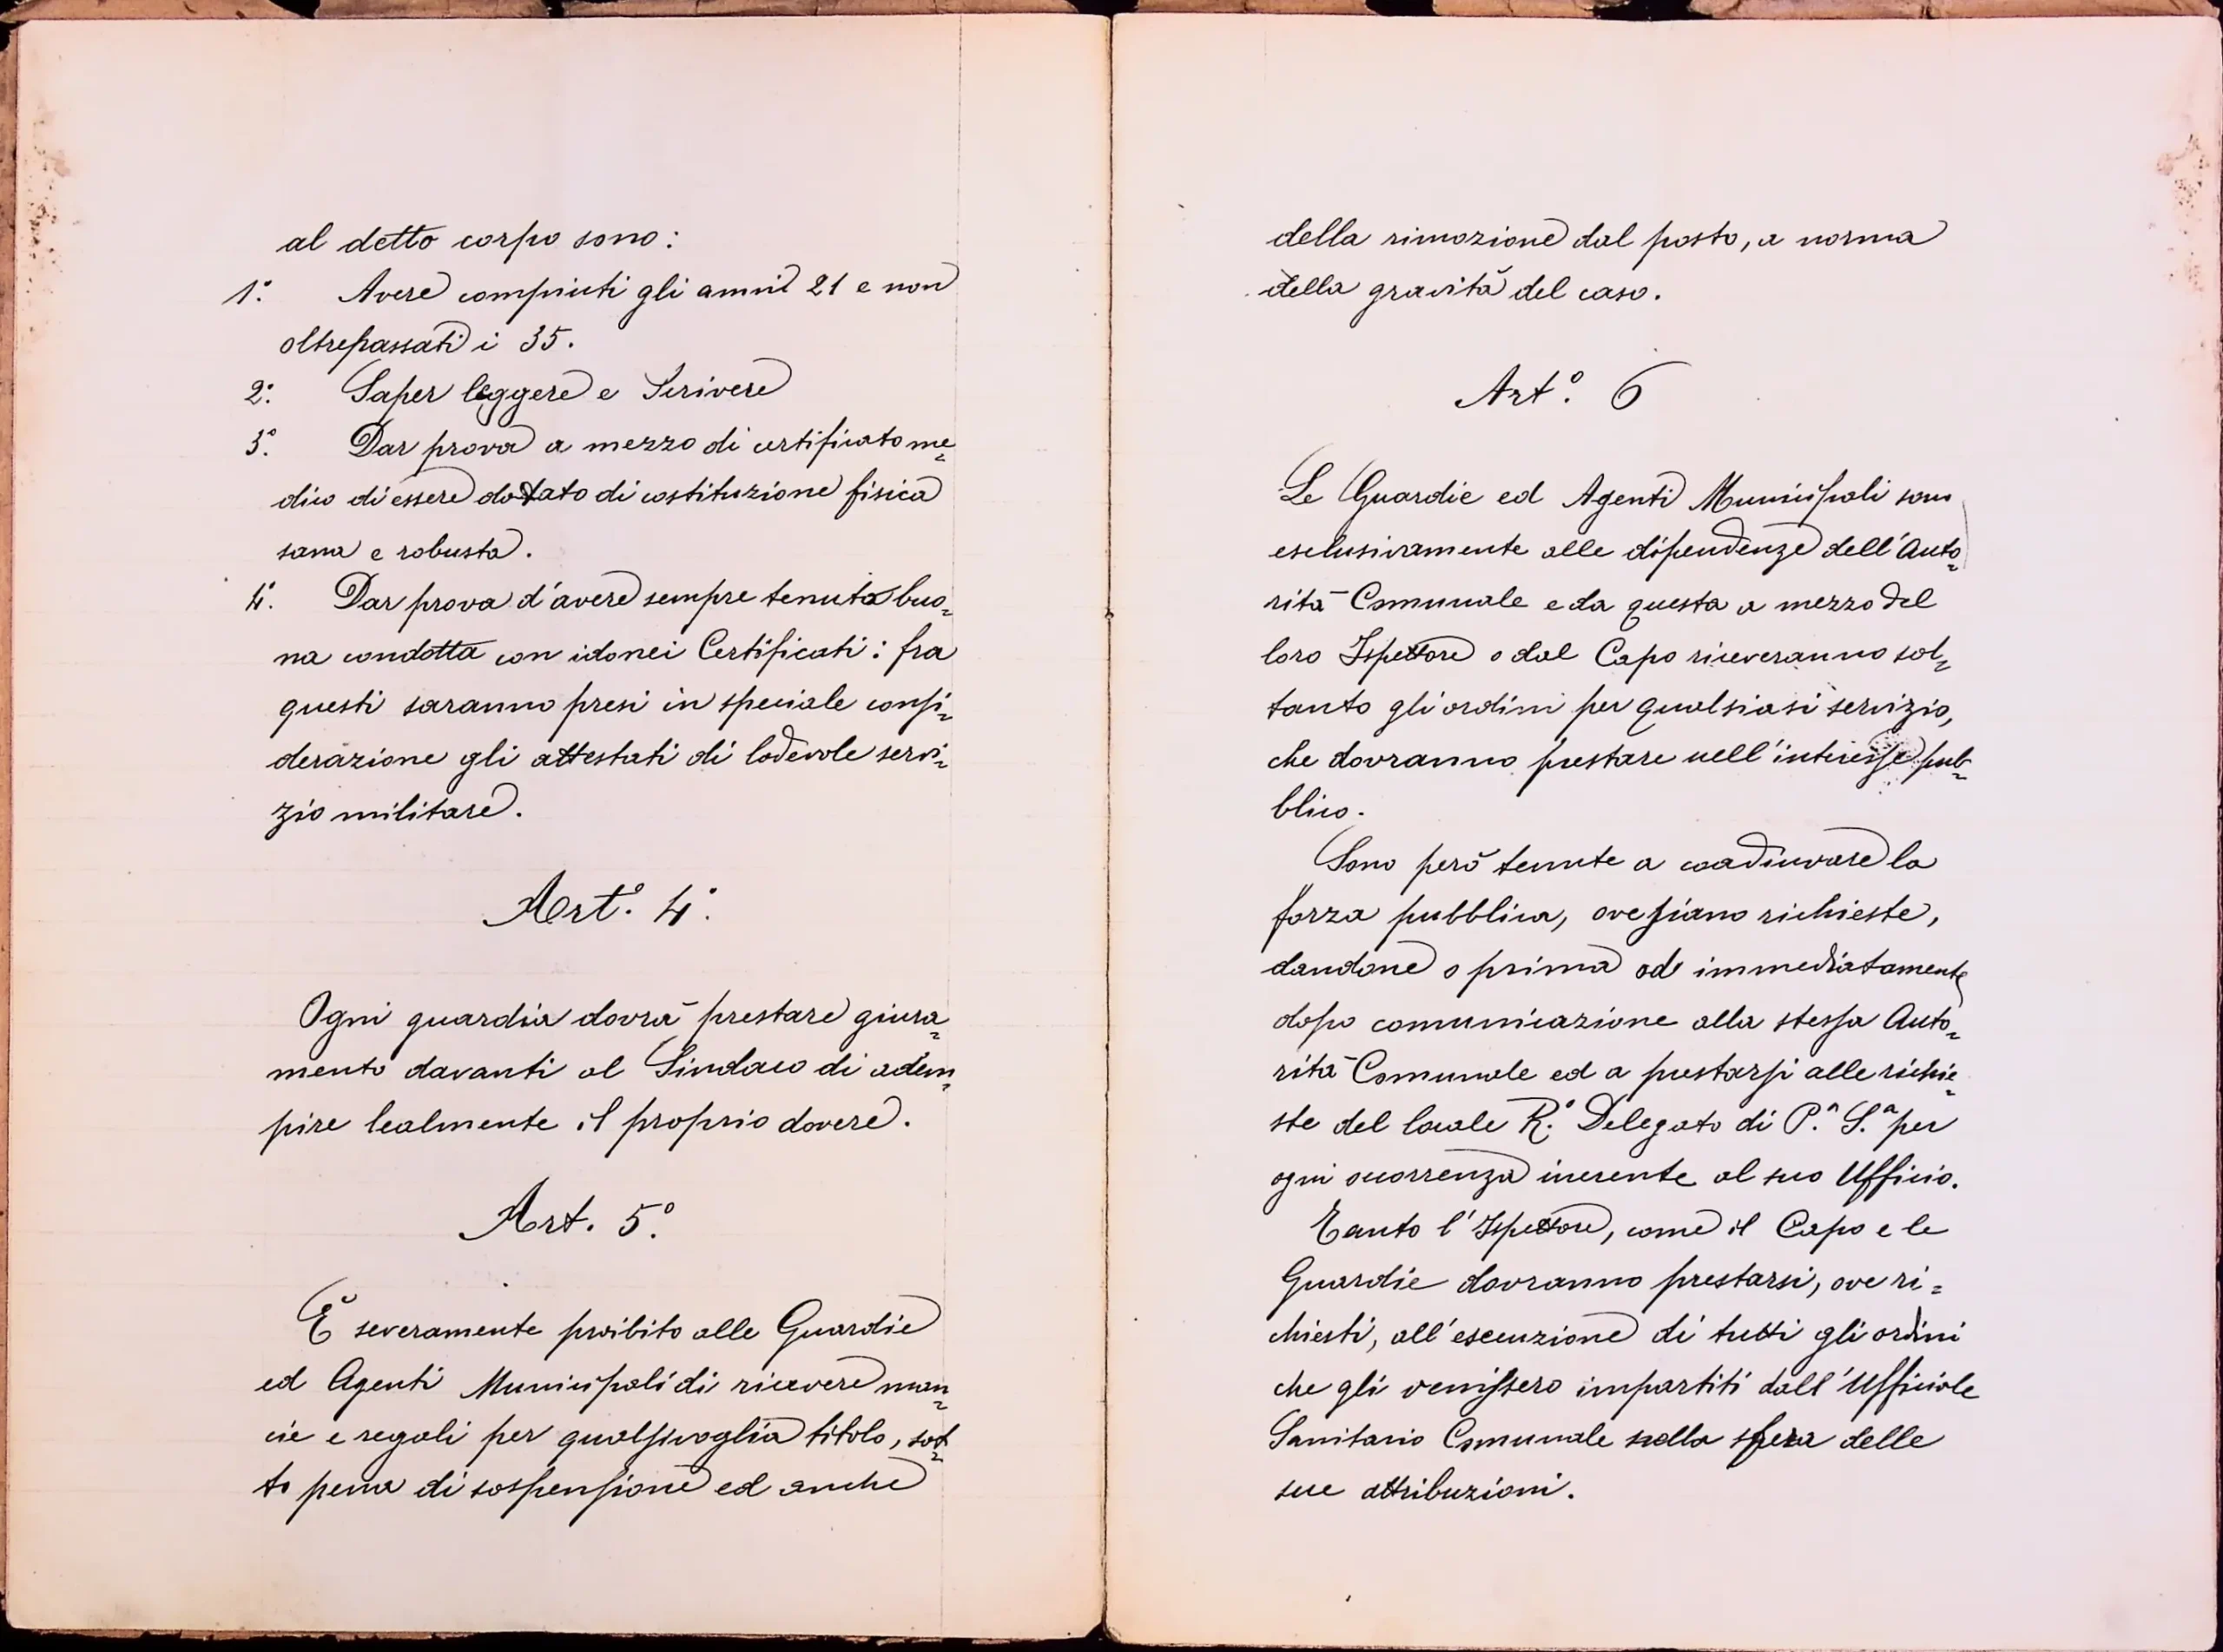 al detto corpo sono:
1.° Avere compiuti gli anni 21 e non
oltrepassati i 35.
2.° Saper leggere e Scrivere
3.° Dar prova a mezzo di certificato me=
dico di essere dotato di costituzione fisica
sana e robusta.
4.° Dar prova d'avere sempre tenuta buo=
na condotta con idonei Certificati: fra
questi saranno presi in speciale consi=
derazione gli attestati di lodevole servi=
zio militare.
Art.° 4.°
Ogni guardia dovrà prestare giura=
mento davanti al Sindaco di adem=
pire lealmente il proprio dovere.
Art. 5.°
È severamente proibito alle Guardie
ed Agenti Municipali di ricevere man=
cie e regali per qualsivoglia titolo, sot=
to pena di sospensione ed anche
della rimozione dal posto, a norma
della gravità del caso.
Art.° 6
Le Guardie ed Agenti Municipali sono
esclusivamente alle dipendenze dell'Auto=
rità Comunale e da questa a mezzo del
loro Ispettore o dal Capo riceveranno sol=
tanto gli ordini per qualsiasi servizio,
che dovranno prestare nell'interesse pub=
blico.
Sono però tenute a coadiuvare la
forza pubblica, ove siano richieste,
dandone o prima od immediatamente
dopo comunicazione alla stessa Auto=
rità Comunale ed a prestarsi alle richie=
ste del locale R.° Delegato di P.ª S.ª per
ogni occorrenza inerente al suo Ufficio.
Tanto l'Ispettore, come il Capo e le
Guardie dovranno prestarsi, ove ri=
chiesti, all'esecuzione di tutti gli ordini
che gli venissero impartiti dall'Ufficiale
Sanitario Comunale nella sfera delle
sue attribuzioni.